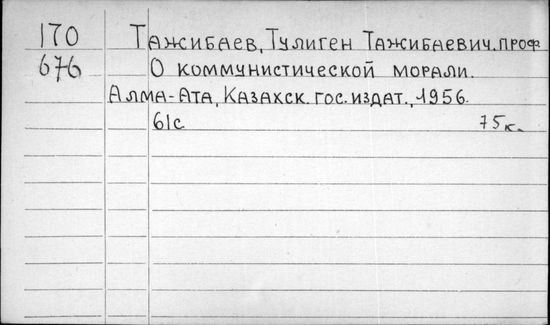 170 Тажибаев, Тулиген Тажибаевич. проф
676 О коммунистической морали.
Алма-Ата, Казахск. гос. издат., 1956.
61с 75к.